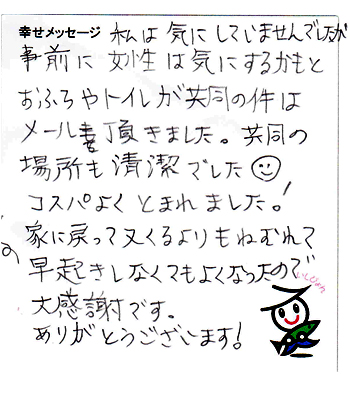 幸せメッセージ 私は気にしていませんでしたが
事前に女性は気にするかもと
おふろやトイレが共同の件は
メールも頂きました。共同の
場所も清潔でした
コスパよくとまれました!
家に戻って又くるよりもねむれて
早起きしなくてもよくなったので
大感謝です。
ありがとうございます!